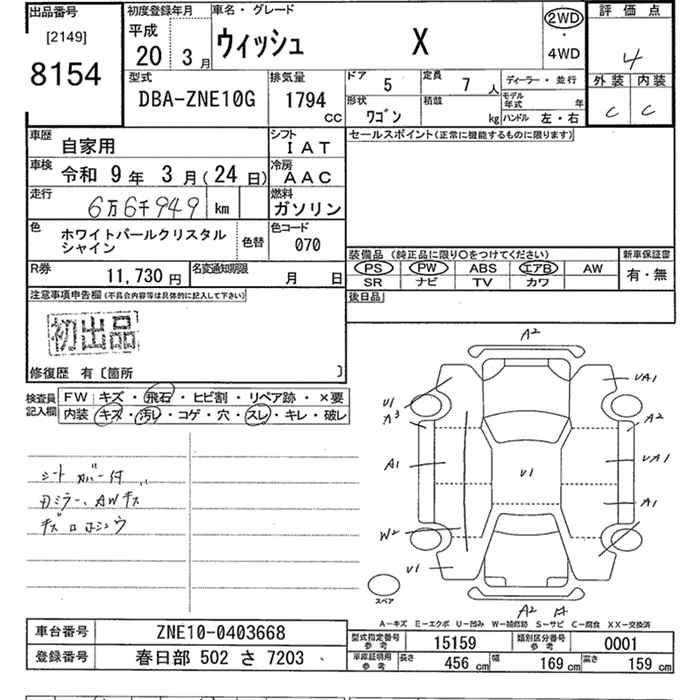 出品番号
[2149]
8154
初度登録年月
平成
20 3月
車名・グレード
ウィッシュ X
2WD
・
4WD
評価点
4
外装 内装
C C
型式
DBA-ZNE10G
排気量
1794
CC
ドア 5
定員 7人
形状 ワゴン
積載 kg
ディーラー・並行
モデル年式 年
ハンドル 左・右
車歴 自家用
シフト IAT
車検 令和 9年 3月(24日)
冷房 AAC
走行 6万6千949 km
燃料 ガソリン
色 ホワイトパールクリスタル
シャイン
色替
色コード 070
R券 11,730円
名変通知期限 月 日
セールスポイント(正常に機能するものに限ります)
装備品(純正品に限り○をつけてください)
PS PW ABS エアB AW
SR ナビ TV カワ
新車保証書
有・無
後日品
注意事項申告欄(不具合内容等は具体的に記入して下さい)
初出品
修復歴 有〔箇所 〕
検査員記入欄
FW キズ・飛石・ヒビ割・リペア跡・×要
内装 キズ・汚レ・コゲ・穴・スレ・キレ・破レ
シートカバー付
ミラー、AWキズ
A2
U1
A3
UA1
A2
A1
U1
UA1
A1
W2
U1
A2
スペア
A－キズ E－エクボ U－凹み W－補修跡 S－サビ C－腐食 XX－交換済
車台番号 ZNE10-0403668
登録番号 春日部 502 さ 7203
型式指定番号 参考 15159
類別区分番号 参考 0001
車庫証明用 参考 長さ 456cm 幅 169cm 高さ 159cm